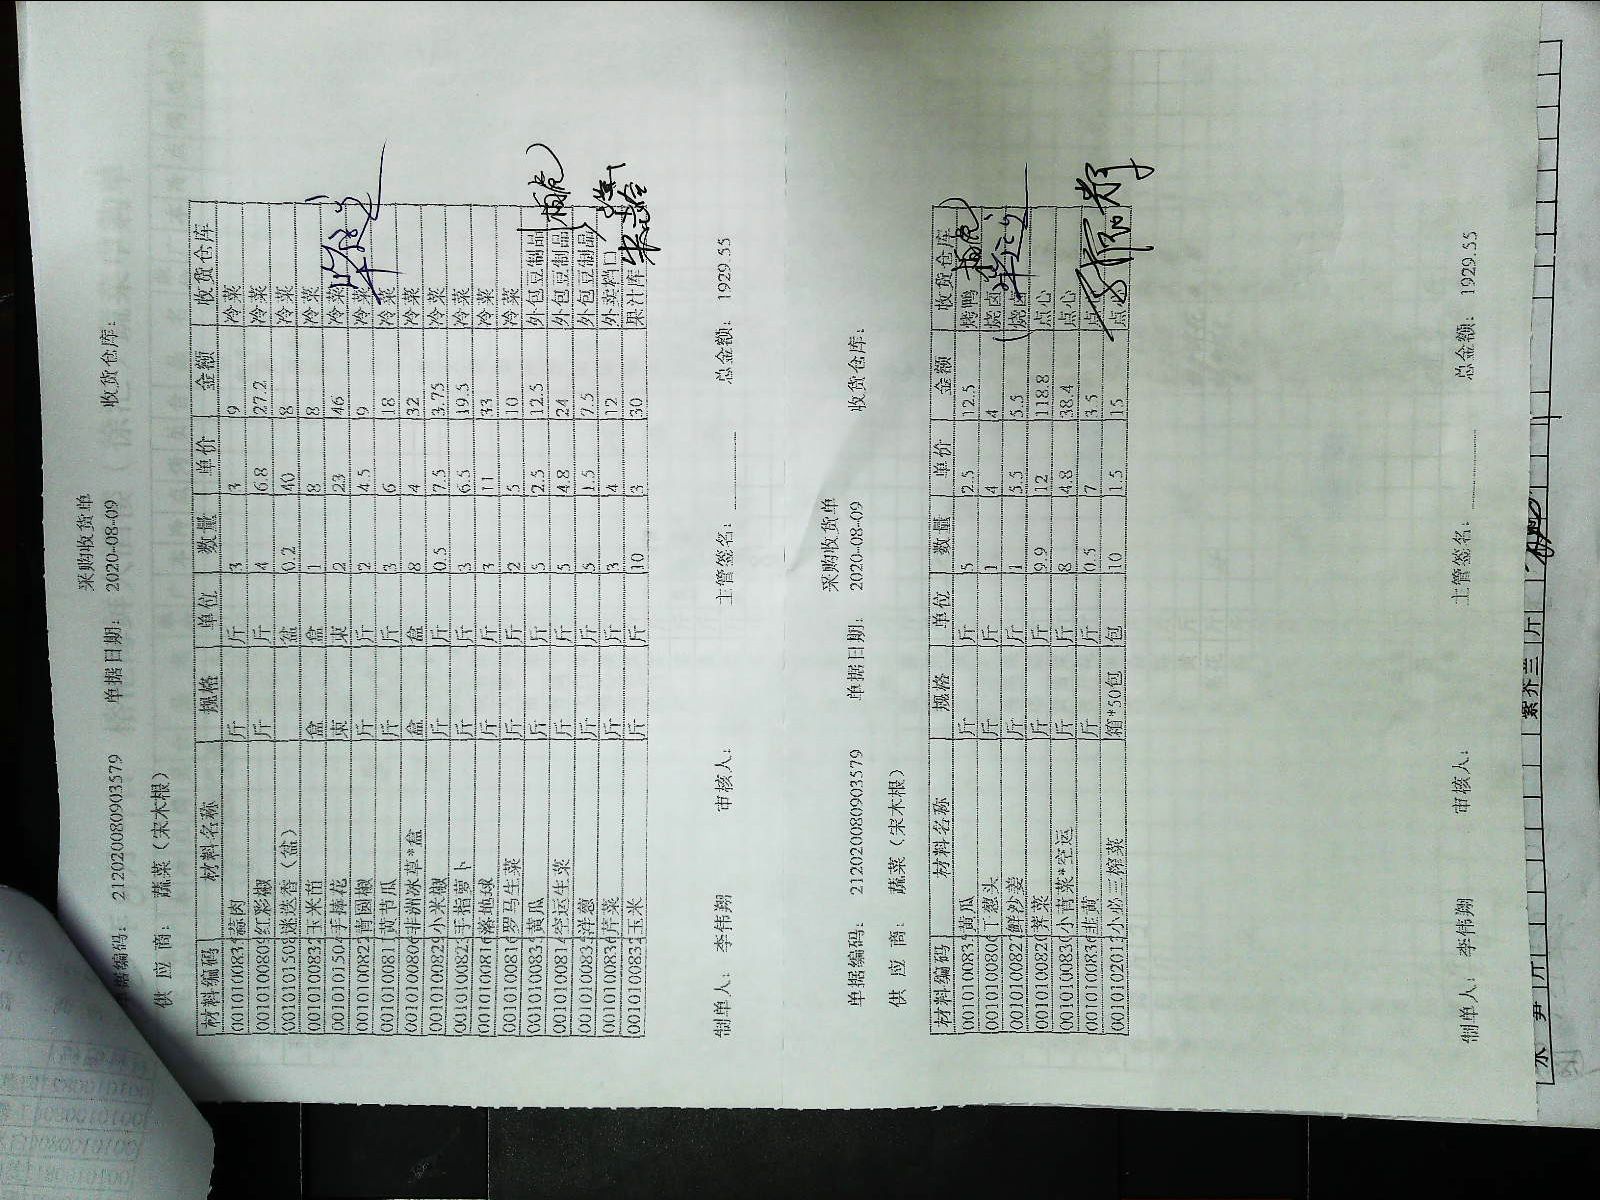 采购收货单
单据编码: 212020080903579 单据日期: 2020-08-09 收货仓库:
供 应 商: 蔬菜（宋木根）
材料编码 材料名称 规格 单位 数量 单价 金额 收货仓库
001010083 蒜肉 斤 斤 3 3 9 冷菜
001010080 红彩椒 斤 斤 4 6.8 27.2 冷菜
001010150 迷迭香（盆） 盆 0.2 40 8 冷菜
001010083 玉米苗 盒 盒 1 8 8 冷菜
001010150 手捧花 束 束 2 23 46 冷菜
001010082 青圆椒 斤 斤 2 4.5 9 冷菜
001010081 黄节瓜 斤 斤 3 6 18 冷菜
001010080 非洲冰草*盒 盒 盒 8 4 32 冷菜
001010082 小米椒 斤 斤 0.5 7.5 3.75 冷菜
001010082 手指萝卜 斤 斤 3 6.5 19.5 冷菜
001010081 落地球 斤 斤 3 11 33 冷菜
001010081 罗马生菜 斤 斤 2 5 10 冷菜
001010083 黄瓜 斤 斤 5 2.5 12.5 外包豆制品
001010081 空运生菜 斤 斤 5 4.8 24 外包豆制品
001010083 洋葱 斤 斤 5 1.5 7.5 外包豆制品
001010083 芹菜 斤 斤 3 4 12 外卖档口
001010083 玉米 斤 斤 10 3 30 果汁库
制单人: 李伟翔 审核人: 主管签名: 总金额: 1929.55
采购收货单
单据编码: 212020080903579 单据日期: 2020-08-09 收货仓库:
供 应 商: 蔬菜（宋木根）
材料编码 材料名称 规格 单位 数量 单价 金额 收货仓库
001010083 黄瓜 斤 斤 5 2.5 12.5 烤鸭
001010080 丁葱头 斤 斤 1 4 4 烧卤
001010082 鲜沙姜 斤 斤 1 5.5 5.5 烧卤
001010082 荠菜 斤 斤 9.9 12 118.8 点心
001010083 小青菜*空运 斤 斤 8 4.8 38.4 点心
001010083 韭黄 斤 斤 0.5 7 3.5 点心
001010201 小必三榨菜 箱*50包 包 10 1.5 15 点心
制单人: 李伟翔 审核人: 主管签名: 总金额: 1929.55
紫芥兰 斤